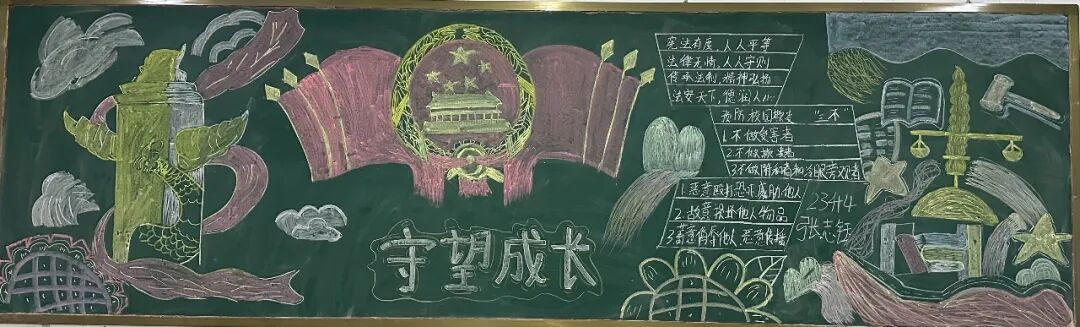 守望成长
宪法有度,人人平等
法律无情,人人守则
传承法制,精神弘扬
法安天下,德润人心
预防校园欺凌 "三不"
1.不做受害者
2.不做欺凌者
3.不做附和者和冷眼旁观者
1.恶意殴打恐吓威胁他人
2.故意损坏他人物品
23升4
张志钰